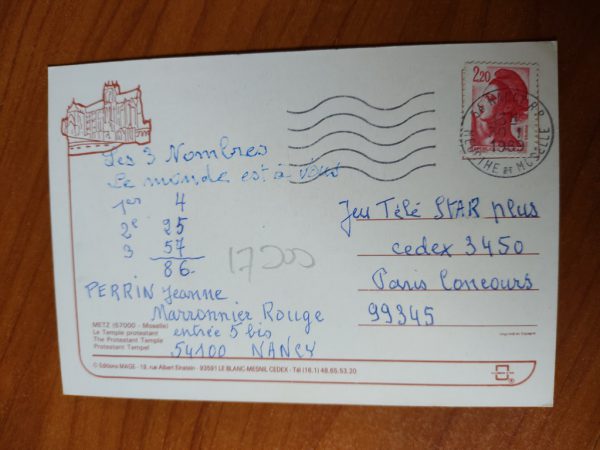 Les 3 Nombres
Le monde est à vous
1er 4
2e 25
3 57
86-
17300
PERRIN Jeanne
Marronnier Rouge
entrée 5 bis
54100 NANCY
METZ (57000 - Moselle)
Le Temple protestant
The Protestant Temple
Protestant Tempel
© Editions MAGE - 19, rue Albert Einstein - 93591 LE BLANC-MESNIL CEDEX - Tél (16.1) 48.65.53.20
2,20
1989
MEURTHE ET MOSELLE
Jeu Télé STAR plus
cedex 3450
Paris Concours
99345